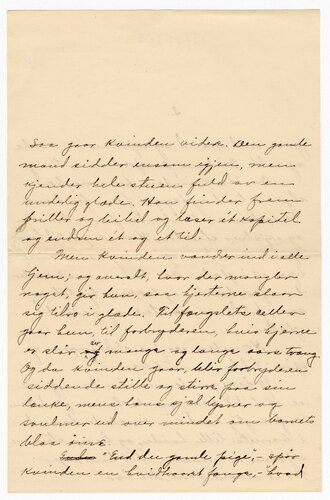 2
Saa gaar kvinden videre. Den gamle
mand sidder ensom igjen, men
kjender hele stuen fuld av en
underlig glæde. Han finder frem
briller og bibel og læser et kapitel
og endnu et og et til.
Men kvinden vandrer ind i alle
hjem; og overalt, hvor der mangler
noget, gir hun, saa hjerterne slaar
sig tilro i glæde. Til fængslets celler
gaar hun til forbryderen, hvis hjerne
er sløv av mange og lange aars tvang
Og da kvinden gaar, blir forbryderen
siddende stille og stirre paa sin
lænke, mens hans sjæl
ut over mindet om barnets
blaa øine.
"End du gamle pige", spør
kvinden en hvidhaaret fange, "hvad